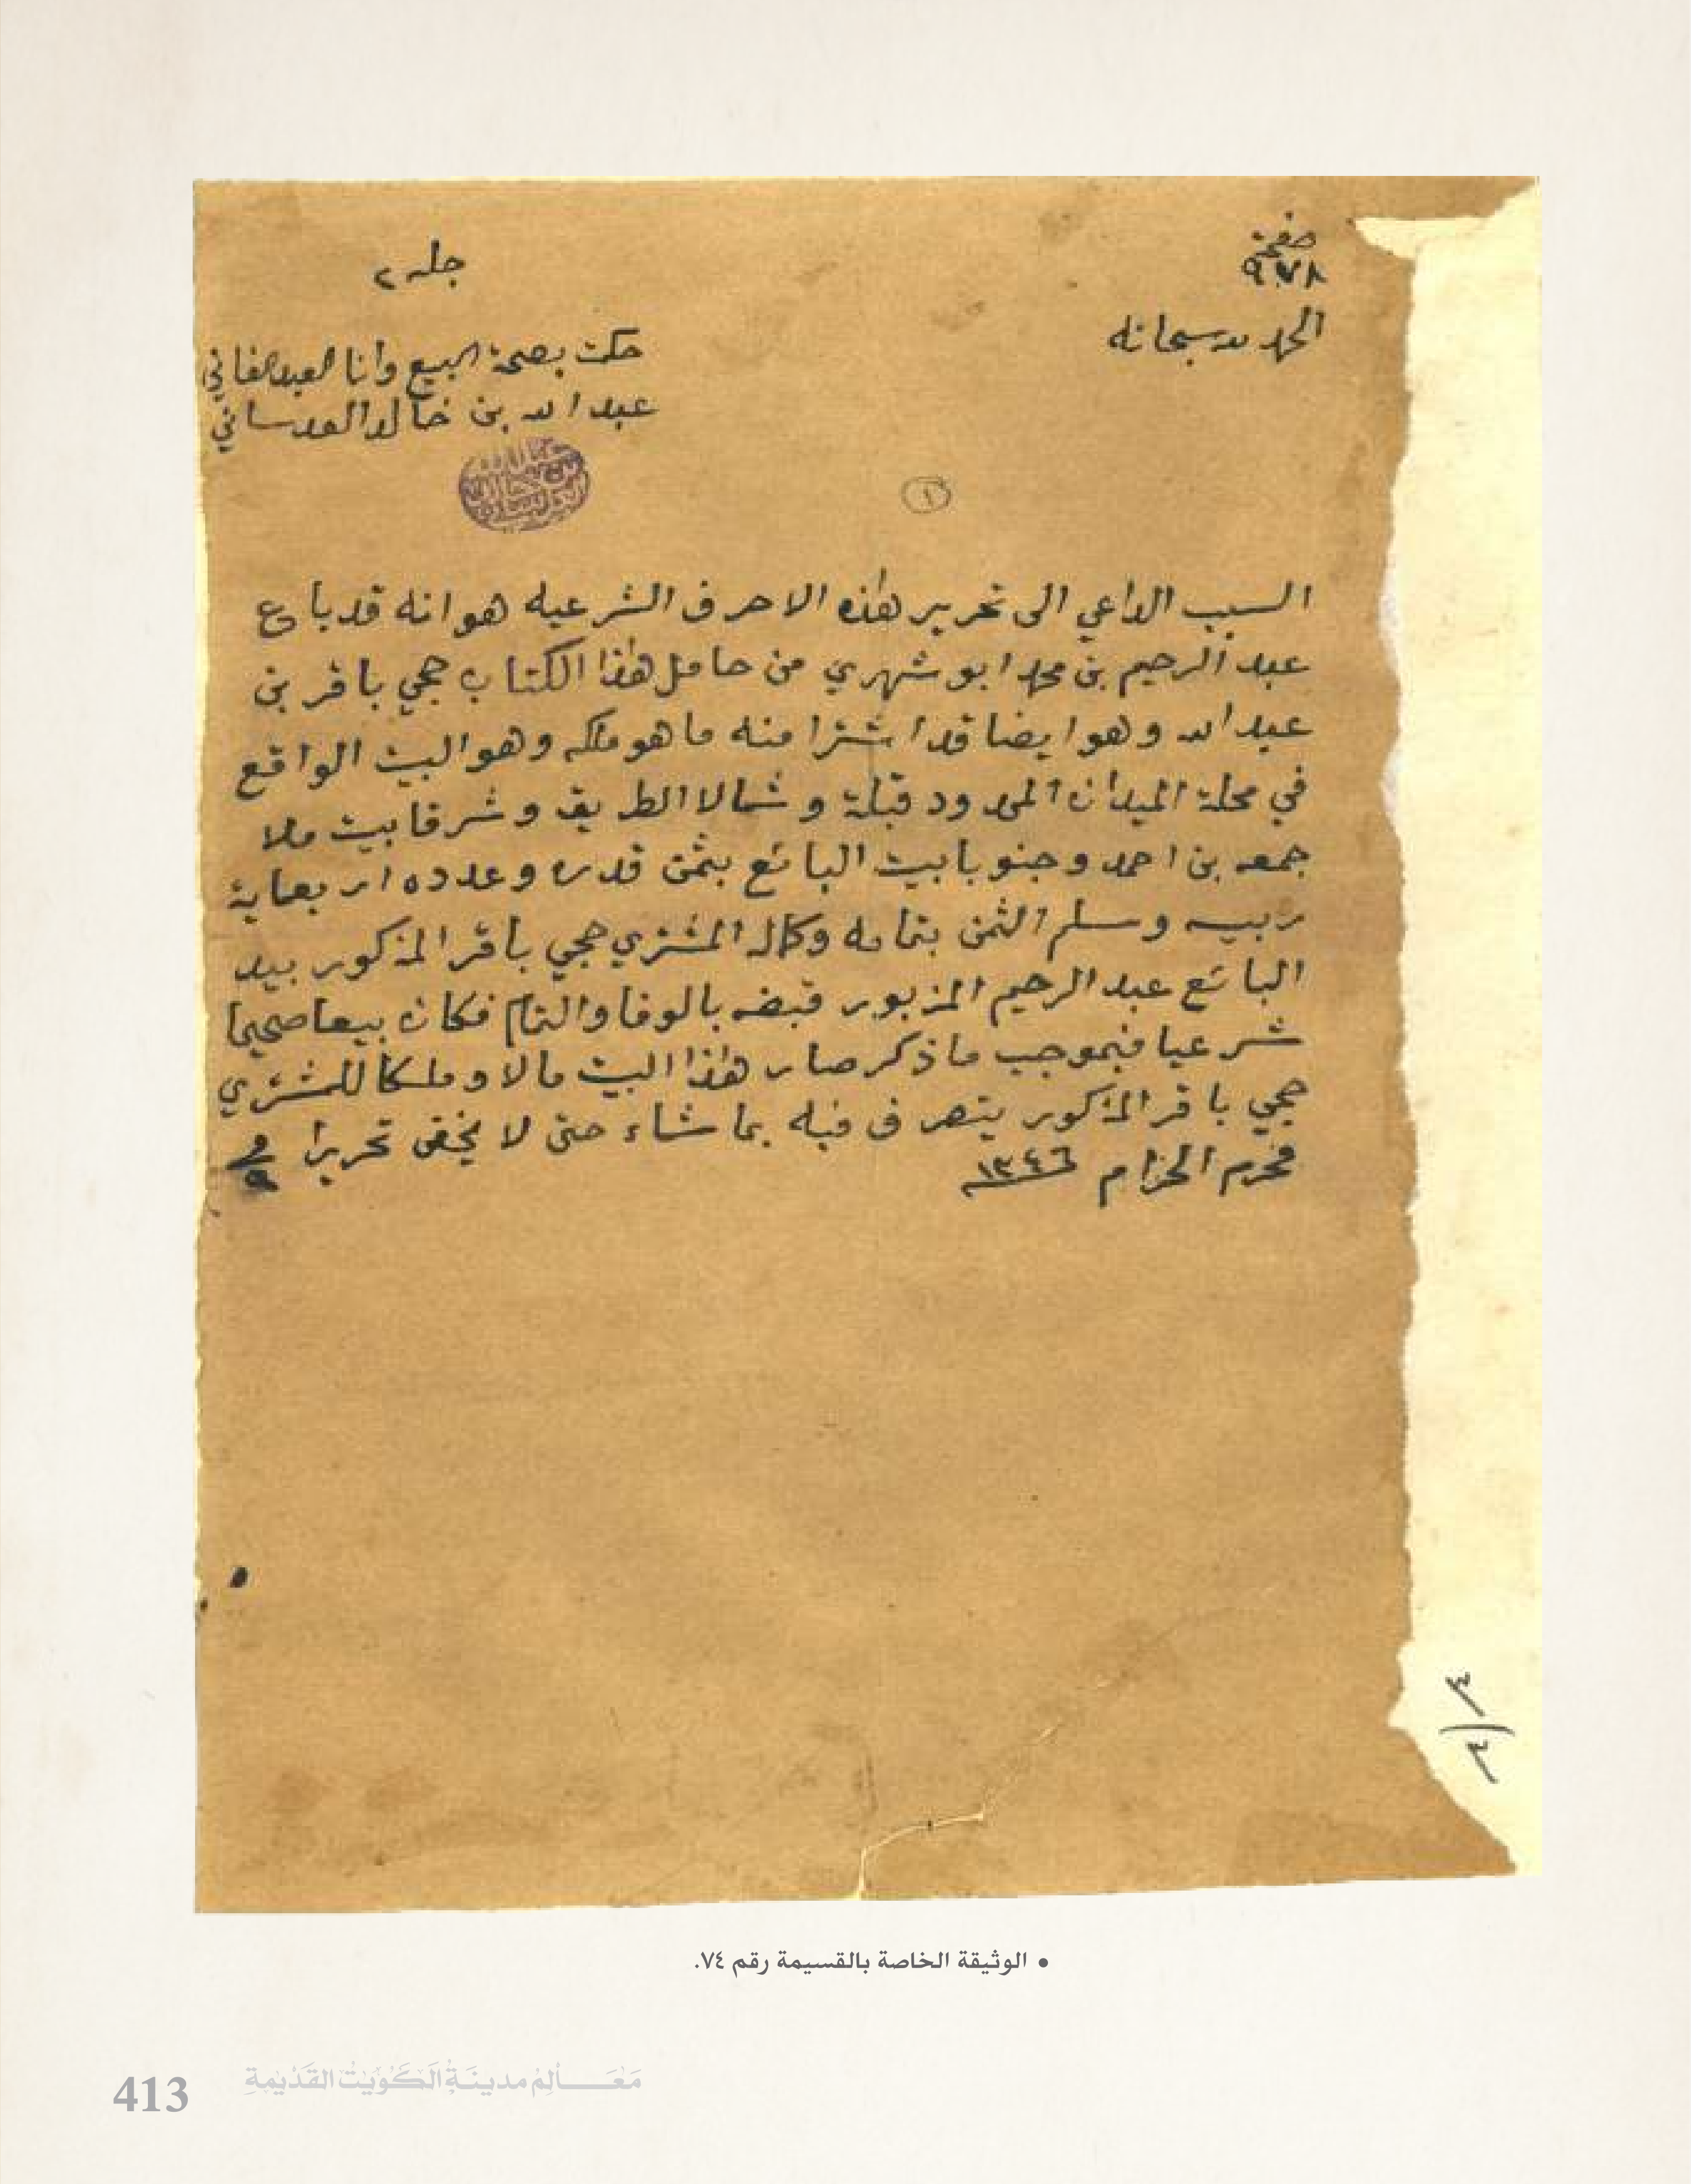 صفحة
٩٧٨
جلد ٢
الحمد لله سبحانه
حكمت بصحة البيع وانا العبد الفاني
عبد الله بن خالد العدساني
١
السبب الداعي الى تحرير هذه الاحرف الشرعيه هو انه قد باع
عبد الرحيم بن محمد ابو شهري من حامل هذا الكتاب حجي باقر بن
عبد الله وهو ايضا قد اشترا منه ما هو ملكه وهو البيت الواقع
في محلة الميدان المحدود قبلة وشمالا الطريق وشرقا بيت ملا
جمعه بن احمد وجنوبا بيت البائع بثمن قدره وعدده اربعماية
ربيه وسلم الثمن بتمامه وكماله المشتري حجي باقر المذكور بيد
البائع عبد الرحيم المزبور قبضه بالوفا والتمام فكان بيعا صحيحا
شرعيا فبموجب ما ذكر صار هذا البيت مالا وملكا للمشتري
حجي باقر المذكور يتصرف فيه بما شاء حتى لا يخفى تحريرا في ٩
محرم الحرام ١٣٤٦
• الوثيقة الخاصة بالقسيمة رقم ٧٤.
413 مَعَالِمُ مدينَةِ الكُوَيْتِ القَدِيْمَةِ